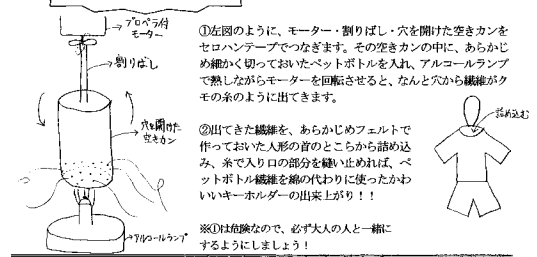 プロペラ付
モーター
割りばし
穴を開けた
空きカン
アルコールランプ
①左図のように、モーター・割りばし・穴を開けた空きカンを
セロハンテープでつなぎます。その空きカンの中に、あらかじ
め細かく切っておいたペットボトルを入れ、アルコールランプ
で熱しながらモーターを回転させると、なんと穴から繊維がク
モの糸のように出てきます。
②出てきた繊維を、あらかじめフェルトで
作っておいた人形の首のとこらから詰め込
み、糸で入り口の部分を縫い止めれば、ペ
ットボトル繊維を綿の代わりに使ったかわ
いいキーホルダーの出来上がり！！
詰め込む
※①は危険なので、必ず大人の人と一緒に
するようにしましょう！